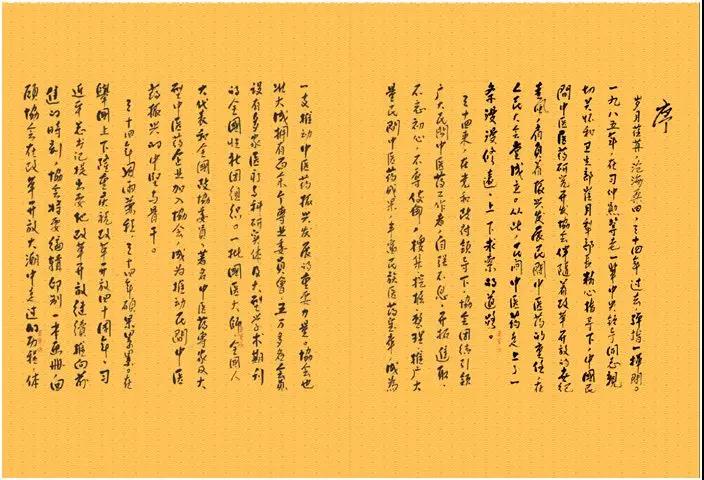 序
岁月荏苒，沧海桑田，三十四年过去弹指一挥间。
一九八五年，在习仲勋等老一辈中央领导同志亲
切关怀和卫生部崔月犁部长精心指导下，中国民
间中医医药研究开发协会伴随着改革开放的世纪
春风，肩负着振兴发展民间中医药的重任，在
人民大会堂成立。从此，民间中医药走上了一
条漫漫修远、上下求索的道路。
三十四年来，在党和政府领导下，协会团结引领
广大民间中医药工作者，自强不息，开拓进取，
不忘初心，不辱使命。搜集挖掘，整理推广大
量民间中医药成果，丰富民族医药宝库，成为
一支推动中医药振兴发展的重要力量。协会也
壮大成拥有百余个专业委员会、五万多名会员、
设有多家医疗与科研实体及大型学术期刊
的全国性社团组织。一批国医大师、全国人
大代表和全国政协委员、著名中医药专家及大
型中医药企业加入协会，成为推动民间中医
药振兴的中坚与骨干。
三十四年风雨兼程，三十四年硕果累累。在
举国上下隆重庆祝改革开放四十周年，习
近平总书记提出要把改革开放继续推向前
进的时刻，协会将要编辑印刷一本画册，回
顾协会在改革开放大潮中走过的历程，体